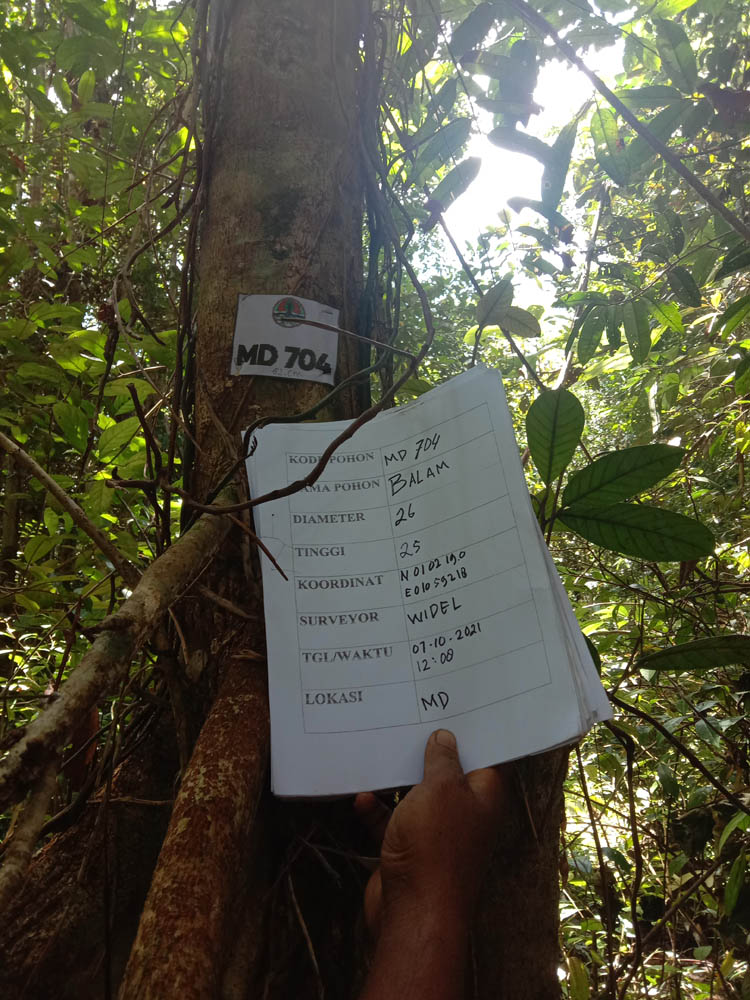 MD 704
KODE POHON MD 704
NAMA POHON BALAM
DIAMETER 26
TINGGI 25
KOORDINAT N 01 02 19.0
E 010 59218
SURVEYOR WIDEL
TGL/WAKTU 07-10-2021
12:08
LOKASI MD